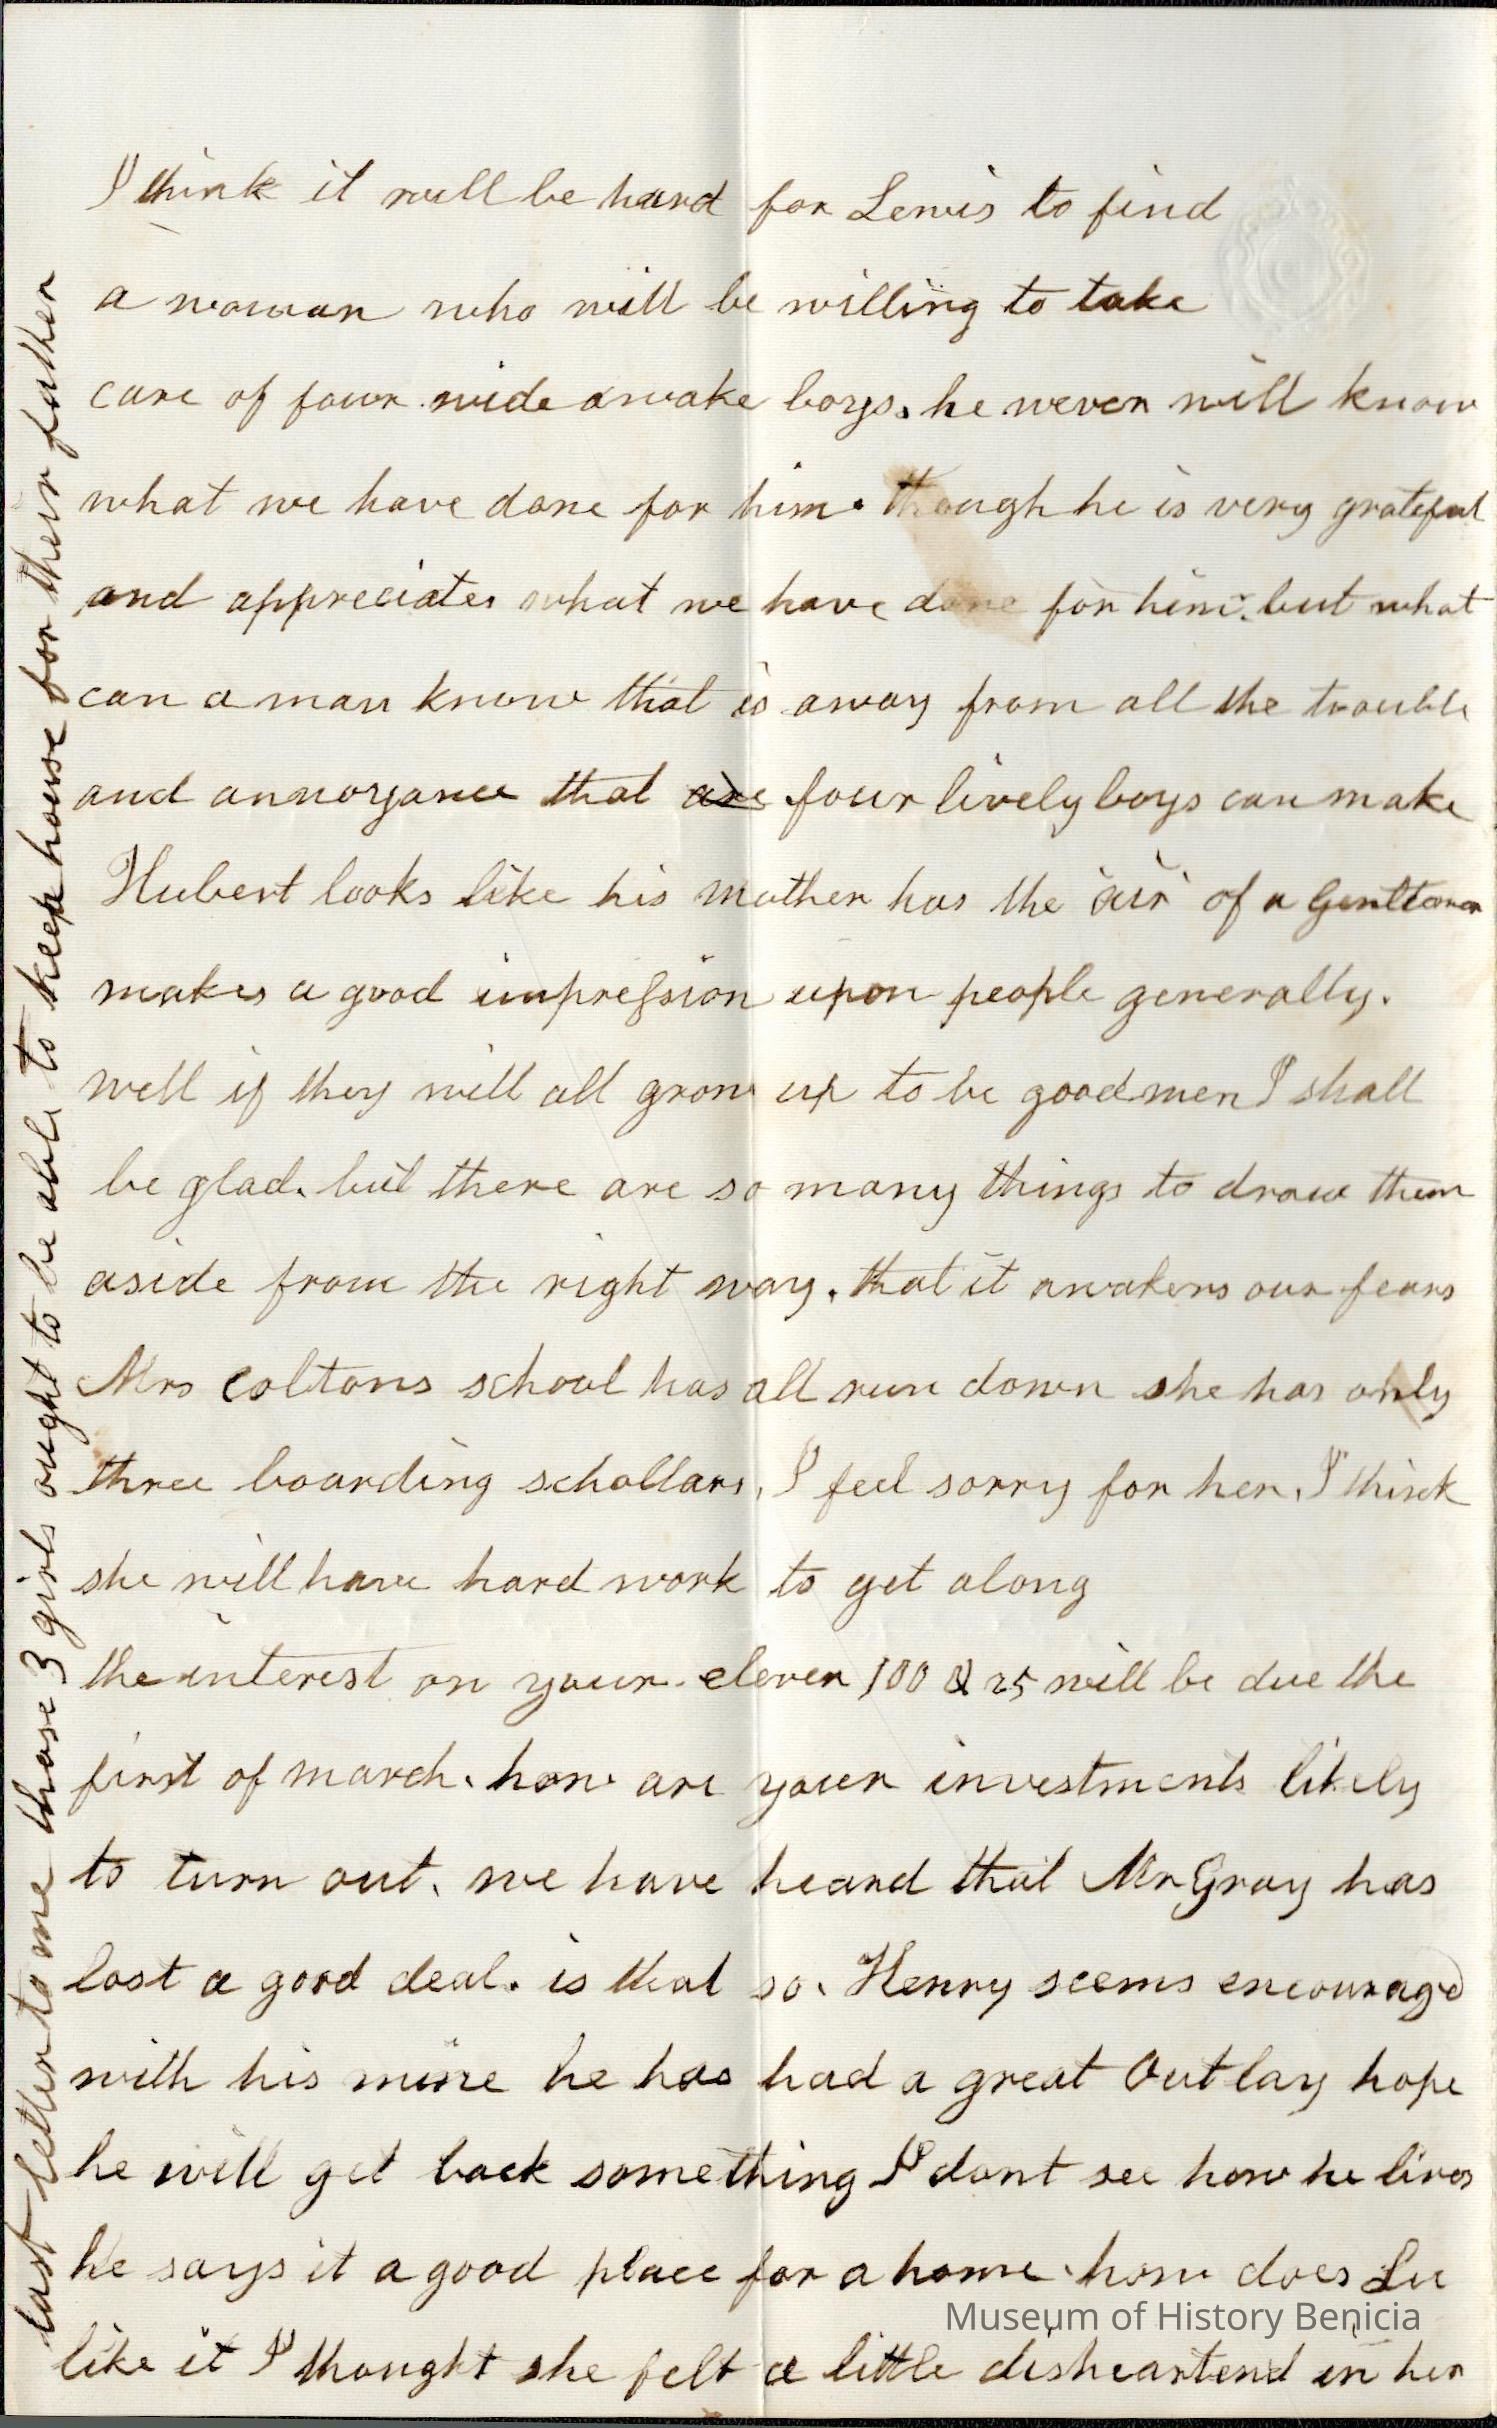 I think it will be hard for Lewis to find
a woman who will be willing to take
care of four wide awake boys. he never will know
what we have done for him. though he is very grateful
and appreciates what we have done for him. but what
can a man know that is away from all the trouble
and annoyance that are four lively boys can make
Hubert looks like his mother has the air of a Gentleman
makes a good impression upon people generally.
well if they will all grow up to be good men I shall
be glad. but there are so many things to draw them
aside from the right way. that it awakens our fears
Mrs Coltons school has all run down she has only
three boarding schollars. I feel sorry for her. I think
she will have hard work to get along
the interest on your eleven 100 & 25 will be due the
first of march. how are your investments likely
to turn out. we have heard that Mr Gray has
lost a good deal. is that so. Henry seems encouraged
with his mine he has had a great Outlay hope
he will get back something I dont see how he lives
he says it a good place for a home. how does Lu
like it I thought she felt a little disheartend in her
last letter to me those 3 girls ought to be able to keep house for their father
Museum of History Benicia